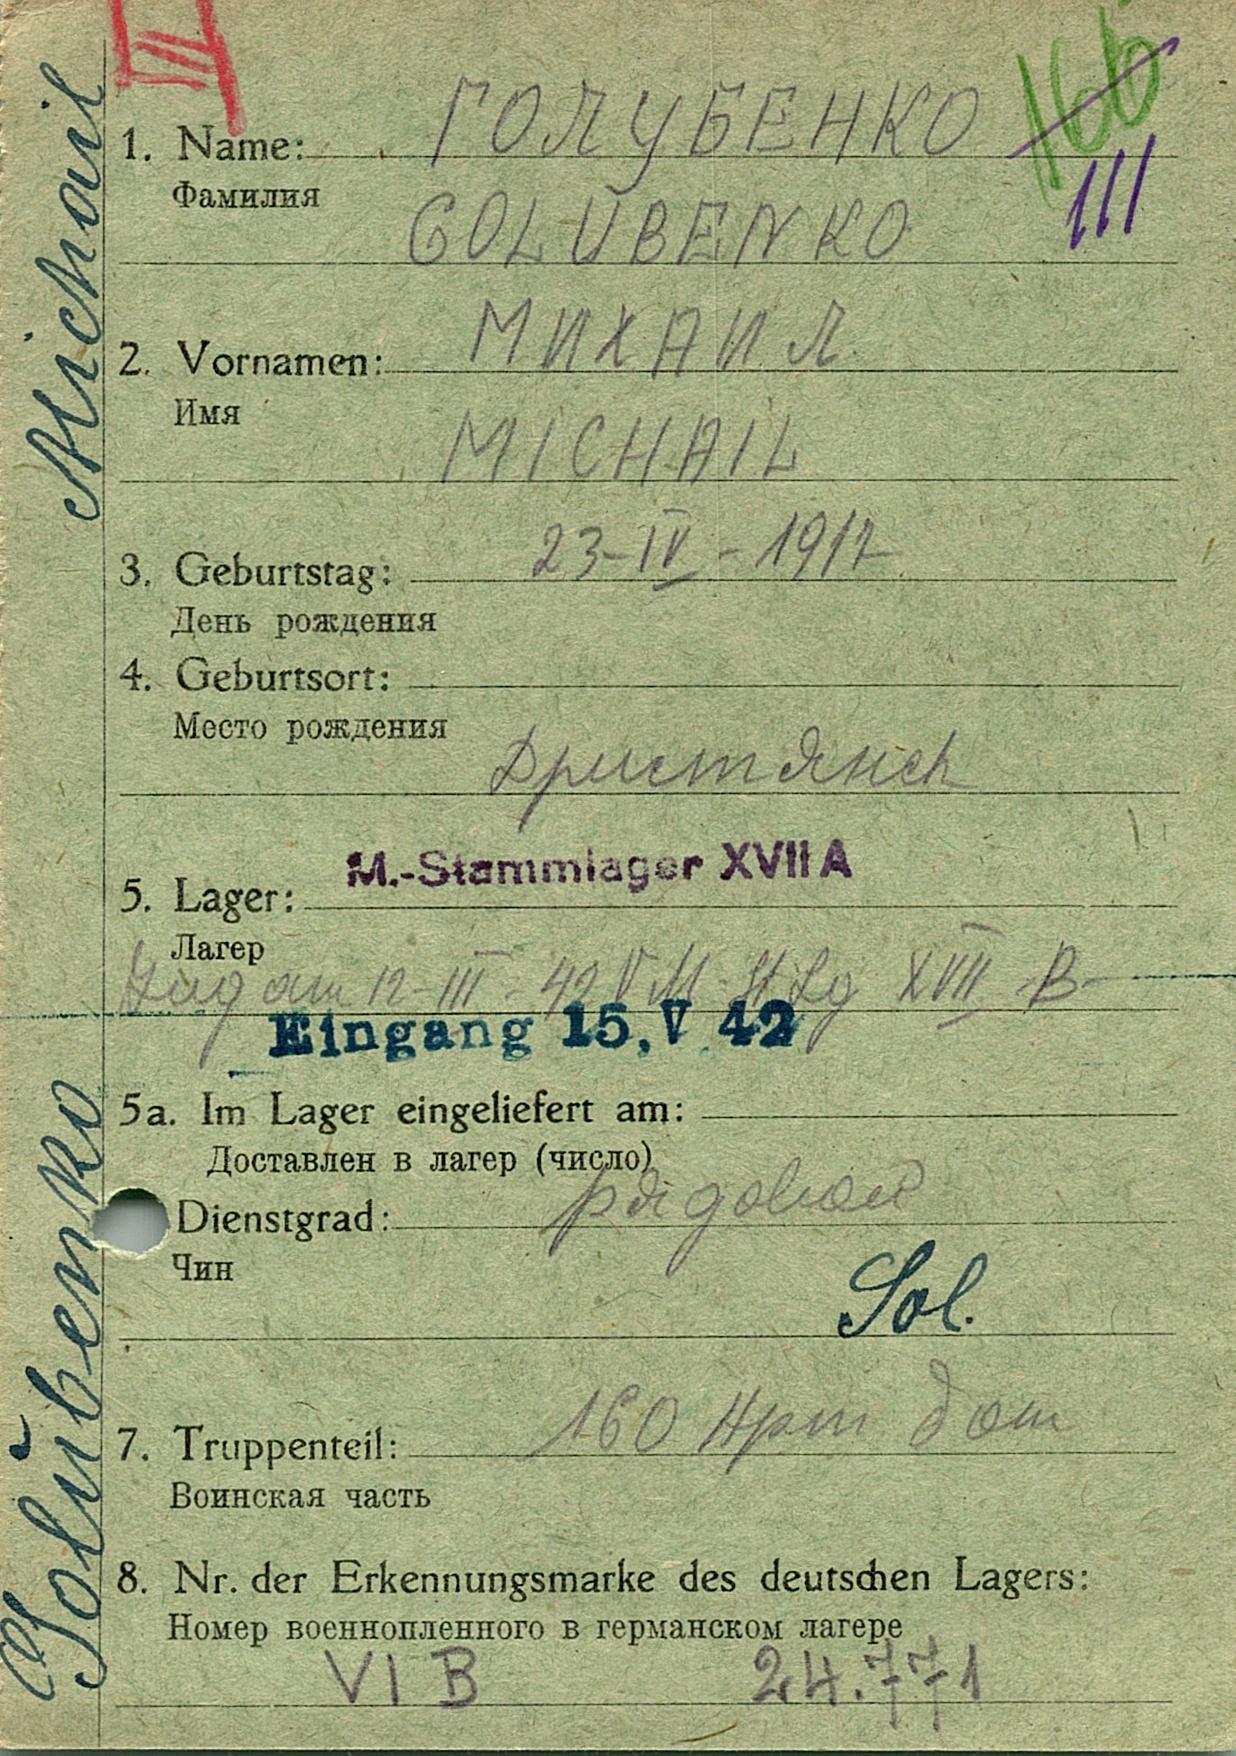 VII
166
1. Name: ГОЛУБЕНКО
Фамилия
111
GOLUBENKO
2. Vornamen: МИХАИЛ
Имя
MICHAIL
3. Geburtstag: 23-IV-1917
День рождения
4. Geburtsort:
Место рождения
5. Lager: M.-Stammlager XVII A
Лагер
am 12-III-42 V M-St Lg XVII B
Eingang 15. V. 42
5a. Im Lager eingeliefert am:
Доставлен в лагер (число)
Dienstgrad: рядовой
Чин
Sol.
7. Truppenteil: 160
Воинская часть
8. Nr. der Erkennungsmarke des deutschen Lagers:
Номер военнопленного в германском лагере
VI B 24.771
Golŭbenko Michail